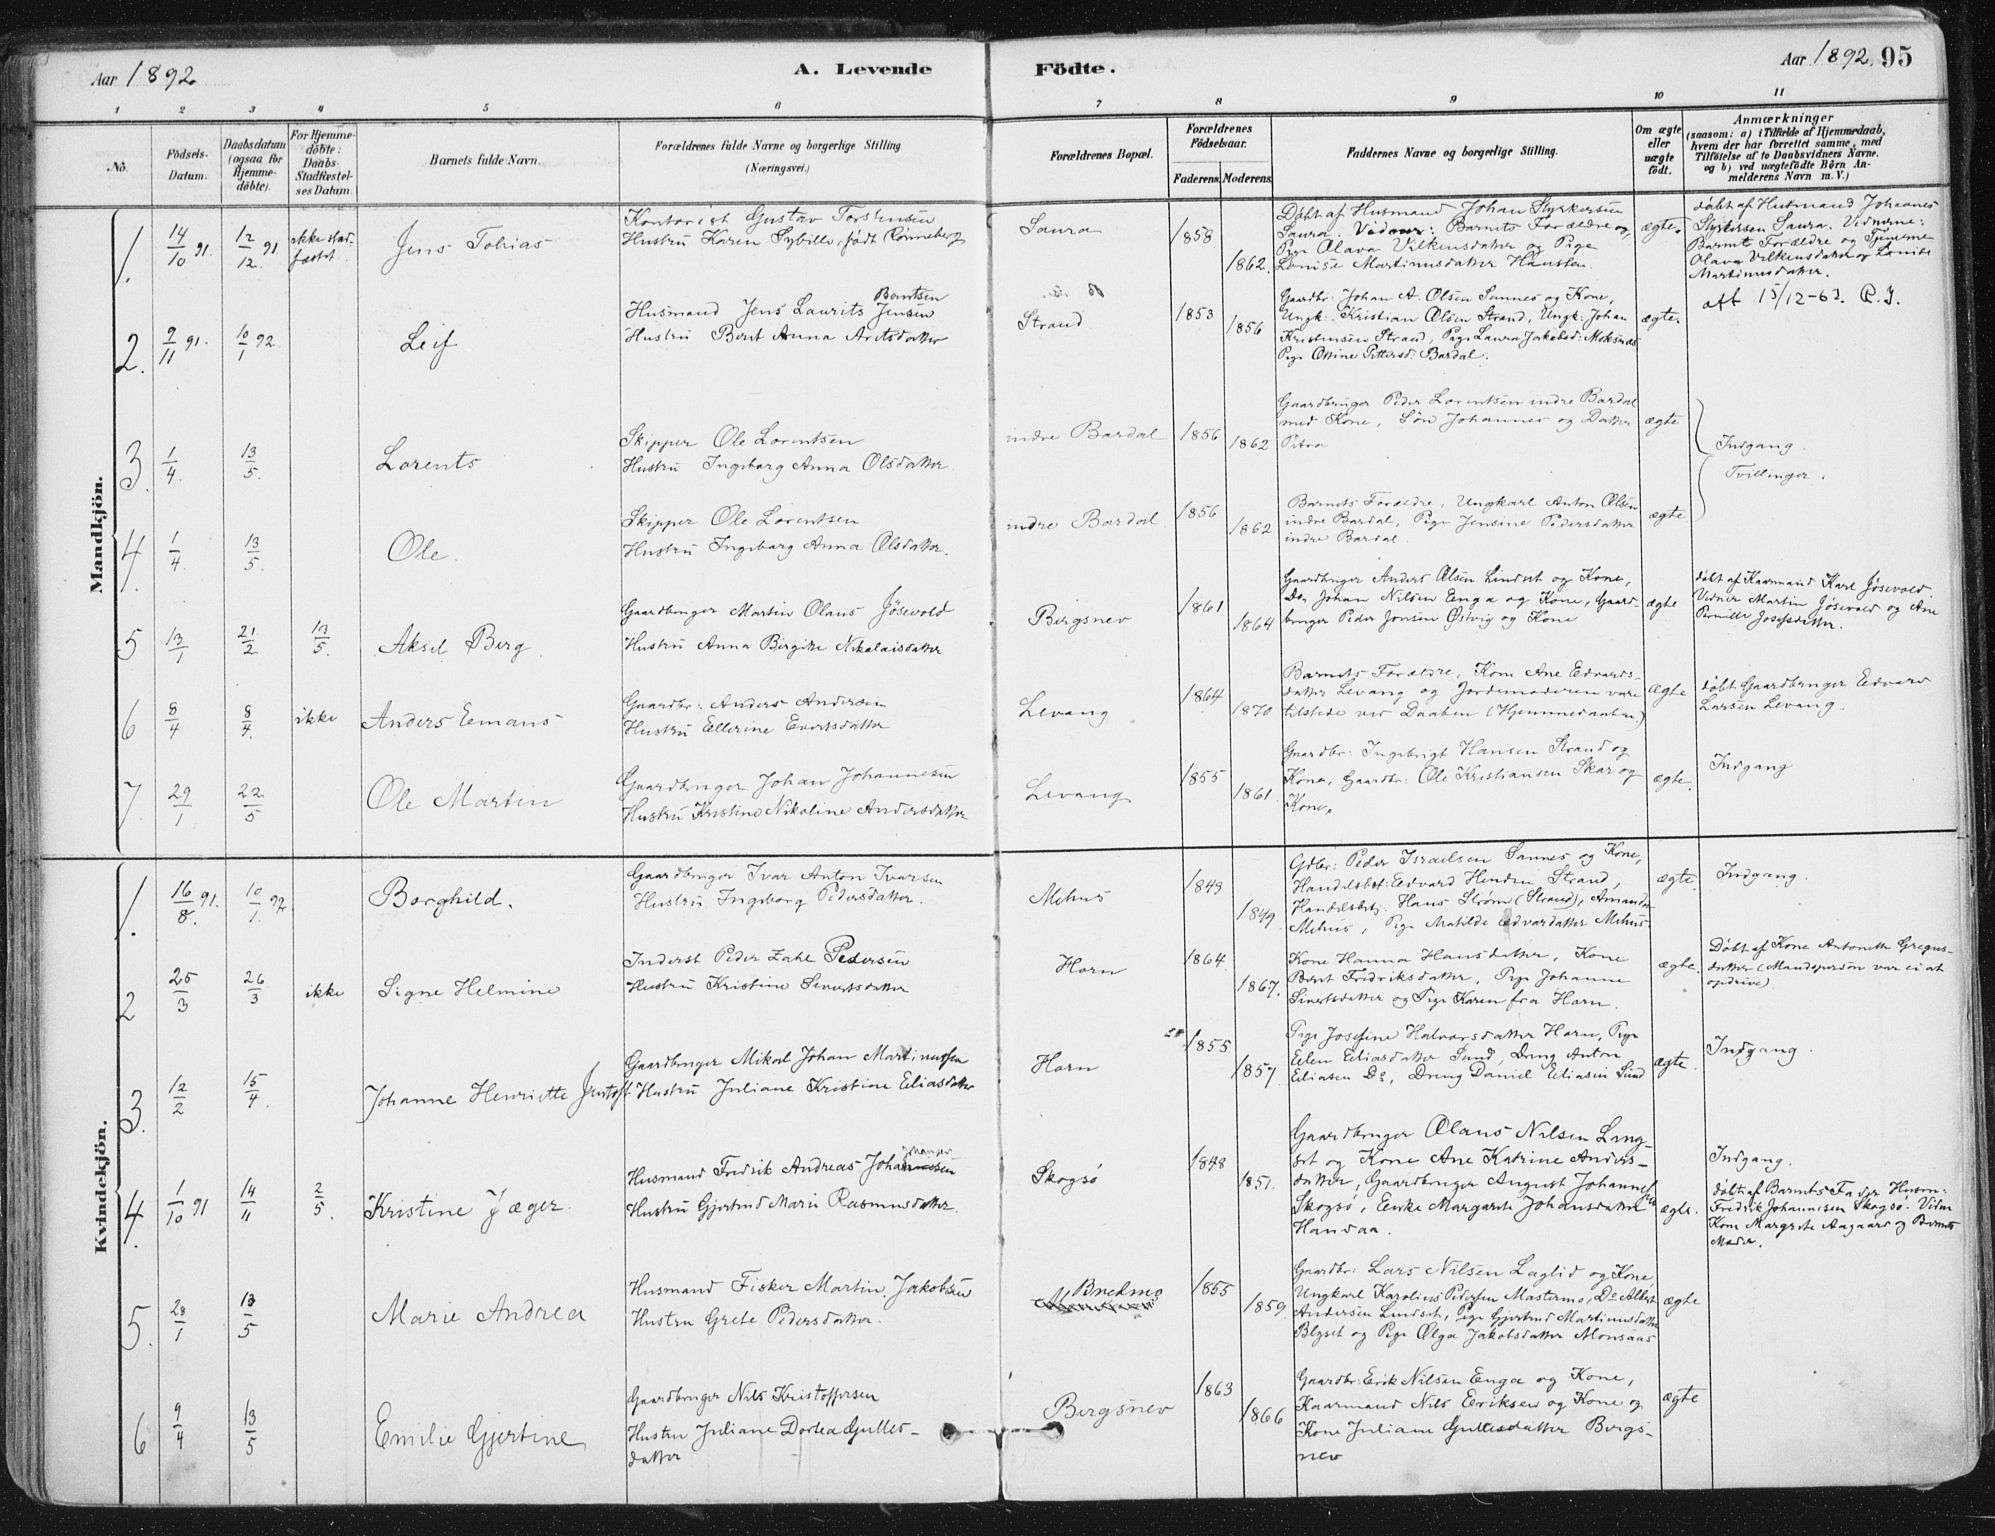 Aar 1892
A. Levende Födte.
Aar 1892. 95
1 2 3 4 5 6 7 8 9 10 11
No.
Födsels-Datum.
Daabsdatum (ogsaa for Hjemme-döbte).
For Hjemme-döbte: Daabs-Stadfæstel-ses Datum.
Barnets fulde Navn.
Forældrenes fulde Navne og borgerlige Stilling. (Næringsvei.)
Forældrenes Bopæl.
Forældrenes Födselsaar.
Faderens. Moderens.
Faddernes Navne og borgerlige Stilling.
Om ægte eller uægte födt.
Anmærkninger
(saasom: a) i Tilfælde af Hjemmedaab, hvem der har forrettet samme, med Tilföielse af to Daabsvidners Navne. og b) ved uægtefödte Börn An-melderens Navn m. V.)
Mandkjön.
1. 14/10 91. 12/12 91 ikke stad-fæstet. Jens Tobias
Kontorist Gustav Torstensen
Hustru Karen Sybille, født Rønneberg
Saura 1858 1862.
Døbt af Husmand Johan Styrkersen
Saura. Vidner: Barnets Forældre og
Pige Olava Vilkensdatter og Pige
Lonise Martinusdatter
ægte.
døbt af Husmand Johannes
Saura. Vidnerne:
Barnets Forældre og
Olava Vilkensdatter og Lonise
Martinusdatter.
2. 9/11 91. 10/1 92. Leif
Husmand Jens Laurits Jensen Berntsen
Hustru Berit Anna
Strand 1853 1856
Gaardbr: Johan A. Olsen Sannes og Kone,
Ungk: Kristian Olsen Strand, Ungk: Johan
Kristensen Strand, Pige Laura Jakobsd: Moksnes
Pige Ottine Pettersd: Bardal.
ægte.
att 15/12-63. R.J.
3. 1/4 13/5. Lorents
Skipper Ole Lorentsen
Hustru Ingeborg Anna Olsdatter.
indre Bardal 1856 1862
Gaardbruger Peder Lorentsen indre Bardal
med Kone, Søn Johannes og Datter
Petra
ægte
Indgang.
Tvillinger.
4. 1/4. 13/5. Ole.
Skipper Ole Lorentsen
Hustru Ingeborg Anna Olsdatter.
indre Bardal 1856 1862
Barnets Forældre, Ungkarl Anton Olsen
indre Bardal, Pige Jensine Pedersdatter
indre Bardal.
ægte
5 13/1 21/2 13/5. Aksel Berg
Gaardbruger Martin Olaus Jøsevold
Hustru Anna Birgitte Nikolaisdatter
Bergsnev 1861 1864
Gaardbruger Anders Olsen Lindset og Kone,
Do Johan Nilsen Enga og Kone, Gaard-
bruger Peder Jonsen Østvig og Kone
ægte
døbt af Kaarmand Karl Jøsevold.
Vidner Martin Jøsevold og Ane
Pernille Josefsdatter.
6 8/4 8/4. ikke Anders Eemans
Gaardbr: Anders Andersen
Hustru Ellerine Evertsdatter
Levang 1864 1870
Barnets Forældre, Kone Ane Edvards-
datter Levang og Jordemoderen vare
tilstede ved Daaben (Hjemmedaaben.)
ægte
døbt Gaardbruger Edvard
Larsen Levang.
7. 29/1 22/5 Ole Martin
Gaardbruger Johan Johannesen
Hustru Kristine Nikoline Andersdatter
Levang 1855 1861.
Gaardbr: Ingebrigt Hansen Strand og
Kone, Gaardbr: Ole Kristiansen Skar og
Kone.
ægte.
Indgang
Kvindekjön.
1. 16/8. 91. 10/1 92. Borghild.
Gaardbruger Ivar Anton Ivarsen
Hustru Ingeborg Pedersdatter.
Mehus 1849 1849.
Gdbr: Peder Israelsen Sannes og Kone,
Handelsbet: Edvard Strand,
Handelsbetj. Hans Strøm (Strand), Amanda
Mehus, Pige Matilde Edvardatter Mehus.
ægte.
Indgang.
2 25/3 26/3 ikke Signe Helmine
Inderst Peder Zahl Pedersen
Hustru Kristine Sivertsdatter
Horn 1864. 1867.
Kone Hanna Hansdatter, Kone
Berit Fredriksdatter, Pige Johanne
Sivertsdatter og Pige Karen fra Horn.
ægte.
Døbt af Kone Antonette Gregus-
datter (Mandsperson var ei at
opdrive).
3. 12/2 15/4. Johanne Henriette Jentoft
Gaardbruger Mikal Johan Martinussen
Hustru Juliane Kristine Eliasdatter
Horn 1855 1857.
Pige Josefine Halvorsdatter Horn, Pige
Ellen Eliasdatter Sund, Dreng Anton
Eliasen Do, Dreng Daniel Eliasen Sund
ægte.
Indgang.
4. 1/10 91 14/11 2/5. Kristine Jæger.
Husmand Fredrik Andreas Johannessen
Hustru Gjertrud Marie Rasmusdatter.
Skogsø 1848 1851.
Gaardbruger Olaus Nilsen Ling-
set og Kone Ane Katrine Anders-
datter, Gaardbruger August Johannessen
Skogsø, Enke Margarete Johansdatter
Handaa.
ægte.
Indgang.
døbt af Barnets Fader Husm:
Fredrik Johannesen Skogsø. Vidn
Kone Margrete Aagaard og Barnets
Moder.
5. 28/1 13/5 Marie Andrea
Husmand Fisker Martin Jakobsen
Hustru Grete Pedersdatter.
1855 1859.
Gaardbr: Lars Nilsen Laglid og Kone
Ungkarl Karolius Pedersen Mastermo, Do Albert
Andersen Lindset, Pige Gjertrud Martinusdatter
Blyset og Pige Olga Jakobsdatter Alonsaas
ægte
6 9/4 13/5 Emilie Gjertine
Gaardbruger Nils Kristoffersen
Hustru Juliane Dortea Gulles-
datter
Bergsnev 1863 1866
Gaardbr: Erik Nilsen Enga og Kone,
Kaarmand Nils Eriksen og Kone og
Kone Juliane Gullesdatter Bergs-
nev
ægte